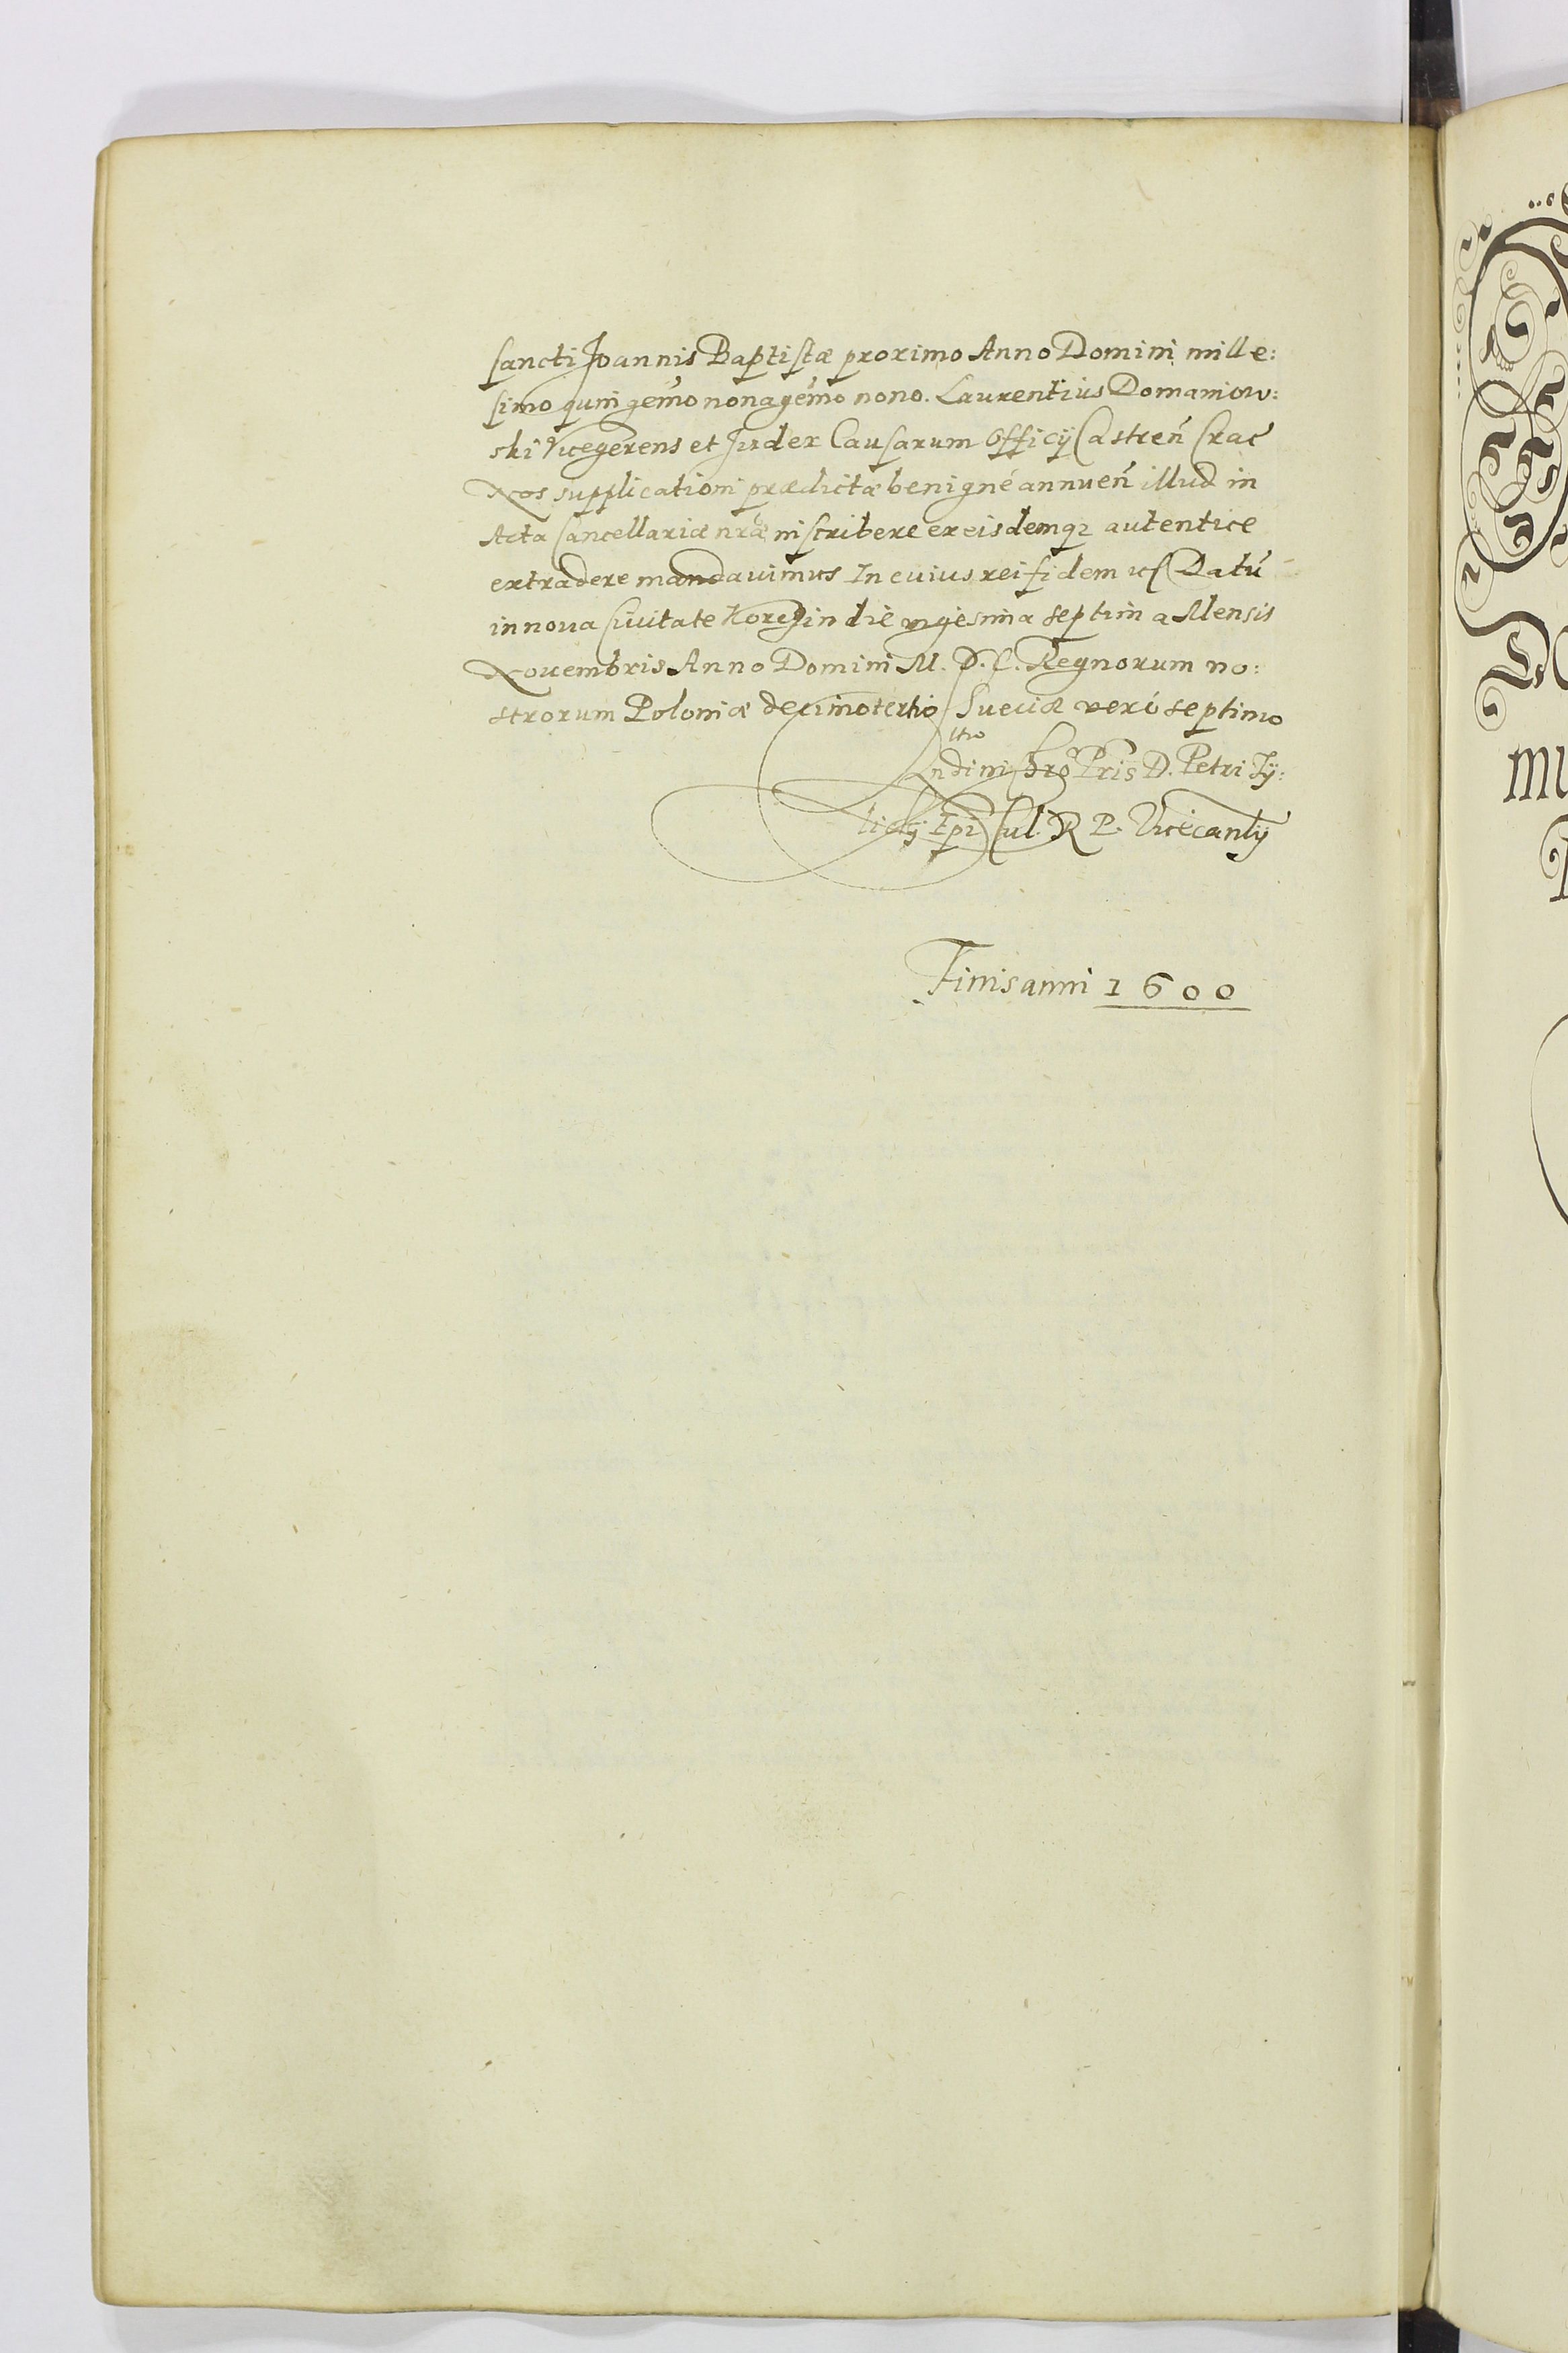 sancti Joannis Baptistæ proximo Anno Domini mille:
simo quingem̃o nonagem̃o nono. Laurentius Domaniow:
ski Vicegerens et Judex Causarum Officij Castreñ Crac̃
Nos supplicationi prædictæ benigné annueñ illud in
Acta Cancellariæ nr̃æ inscribere ex eisdemq₃ autentice
extradere mandavimus In cuius rei fidem Datũ
in noua Ciuitate Korcẏin die vigesima septima Mensis
Nouembris Anno Domini M. D. C. Regnorum no:
strorum Poloniæ decimotertio Sueciæ veró septimo
Pr̃is D. Petri Tÿ:
licij Ep̃i Cul. R P. Vicecanl̃ij
Finis anni 1600